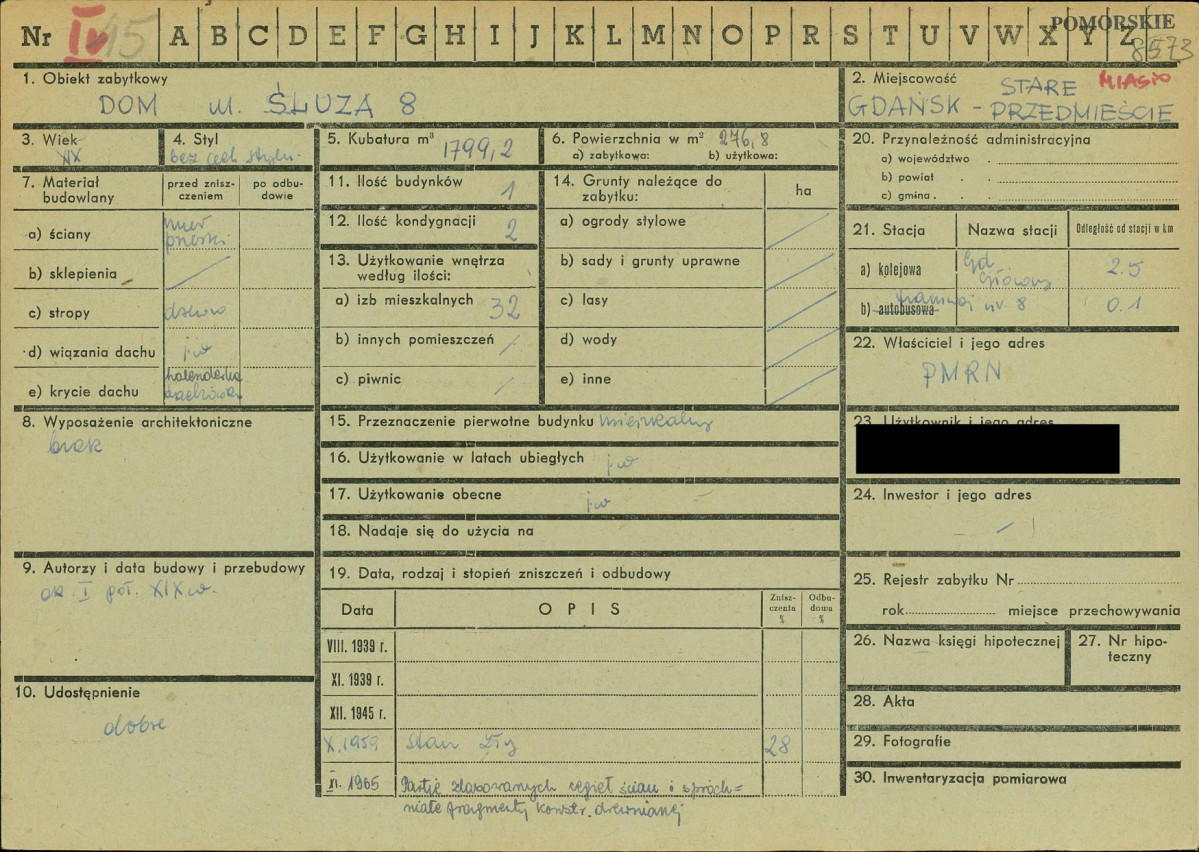 Nr IV 15 A B C D E F G H I J K L M N O P R S T U V W X Y Z POMORSKIE
8573
1. Obiekt zabytkowy
DOM ul. ŚLUZA 8
2. Miejscowość STARE MIASTO
GDAŃSK - PRZEDMIEŚCIE
3. Wiek
XIX
4. Styl
bez cech stylu.
5. Kubatura m³ 1799,2
6. Powierzchnia w m² 276,8
a) zabytkowa: b) użytkowa:
20. Przynależność administracyjna
a) województwo
b) powiat
c) gmina
7. Materiał budowlany
przed zniszczeniem
po odbudowie
a) ściany mur pruski
b) sklepienia /
c) stropy drewno
d) wiązania dachu jw
e) krycie dachu holenderka dachówka
11. Ilość budynków 1
12. Ilość kondygnacji 2
13. Użytkowanie wnętrza
według ilości:
a) izb mieszkalnych 32
b) innych pomieszczeń /
c) piwnic /
14. Grunty należące do
zabytku:
ha
a) ogrody stylowe /
b) sady i grunty uprawne /
c) lasy /
d) wody /
e) inne /
21. Stacja Nazwa stacji Odległość od stacji w km
a) kolejowa Gd. Główny 2.5
b) autobusowa tramwaj nr. 8 0.1
22. Właściciel i jego adres
PMRN
8. Wyposażenie architektoniczne
brak
15. Przeznaczenie pierwotne budynku mieszkalny
16. Użytkowanie w latach ubiegłych jw
17. Użytkowanie obecne jw
18. Nadaje się do użycia na
23. Użytkownik i jego adres
24. Inwestor i jego adres
/
9. Autorzy i data budowy i przebudowy
ok. I poł. XIX w.
10. Udostępnienie
dobre
19. Data, rodzaj i stopień zniszczeń i odbudowy
Data OPIS Zniszczenia % Odbudowa %
VIII. 1939 r.
XI. 1939 r.
XII. 1945 r.
X. 1959 Stan zły 28
XI. 1965 Partię zlasowanych cegieł ścian i spróch=
niałe fragmenty konstr. drewnianej
25. Rejestr zabytku Nr
rok miejsce przechowywania
26. Nazwa księgi hipotecznej
27. Nr hipoteczny
28. Akta
29. Fotografie
30. Inwentaryzacja pomiarowa